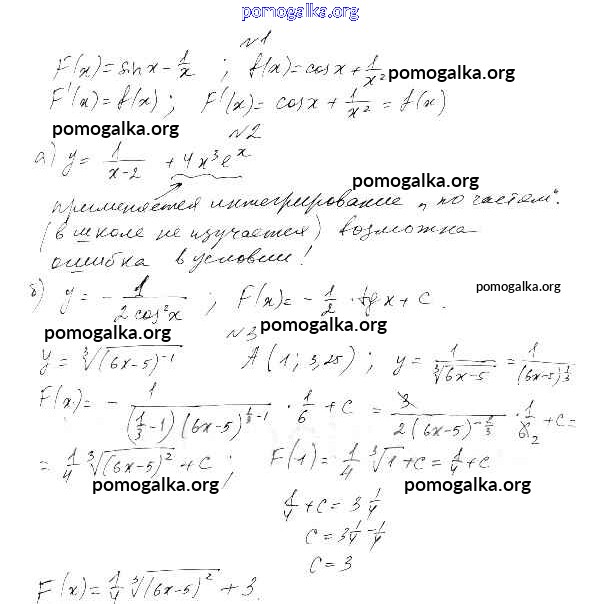 pomogalka.org
№1
F(x)=sinx-1/x ; f(x)=cosx+1/x² pomogalka.org
F'(x)=f(x); F'(x)=cosx+1/x²=f(x)
pomogalka.org
№2
а) y=1/(x-2) +4x³eˣ
pomogalka.org
применяется интегрирование „по частям".
(в школе не изучается) возможна
ошибка в условии!
pomogalka.org
б) y=-1/(2cos²x) ; F(x)=-1/2·tgx+C.
pomogalka.org pomogalka.org
№3
y=∛((6x-5)⁻¹) A(1; 3,25); y=1/∛(6x-5)=1/(6x-5)^(1/3)
F(x)=-1/((1/3-1)(6x-5)^(1/3-1))·1/6+C=3/(2(6x-5)^(-2/3))·1/6₂+C=
=1/4∛((6x-5)²)+C; F(1)=1/4∛1+C=1/4+C
pomogalka.org pomogalka.org
1/4+C=3 1/4
C=3 1/4-1/4
pomogalka.org pomogalka.org
C=3
F(x)=1/4∛((6x-5)²)+3.